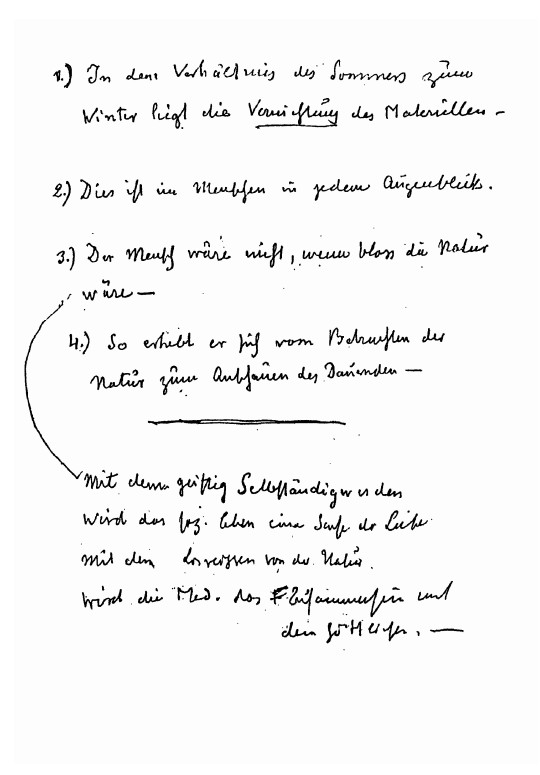 1.) In dem Verhältnis des Sommers zum
Winter liegt die Vernichtung des Materiellen –
2.) Dies ist im Menschen in jedem Augenblick.
3.) Der Mensch wäre nicht, wenn bloss die Natur
wäre —
4.) So erhebt er sich vom Betrachten der
Natur zum Anschauen des Dauernden —
Mit dem geistig Selbständigwerden
wird das soz. Leben eine Sache der Liebe
Mit dem Losreissen von der Natur.
wird die Med. das Zusammensein mit
dem Göttlichen. —